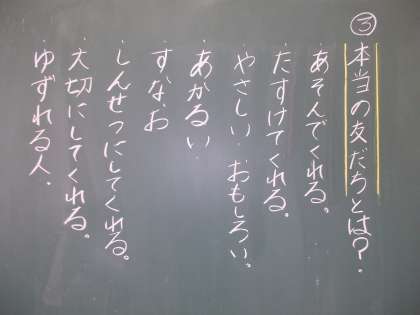 ③本当の友だちとは?
・あそんでくれる。
・たすけてくれる。
・やさしい・おもしろい。
・あかるい・
・すなお
・しんせつにしてくれる。
・大切にしてくれる。
・ゆずれる人。